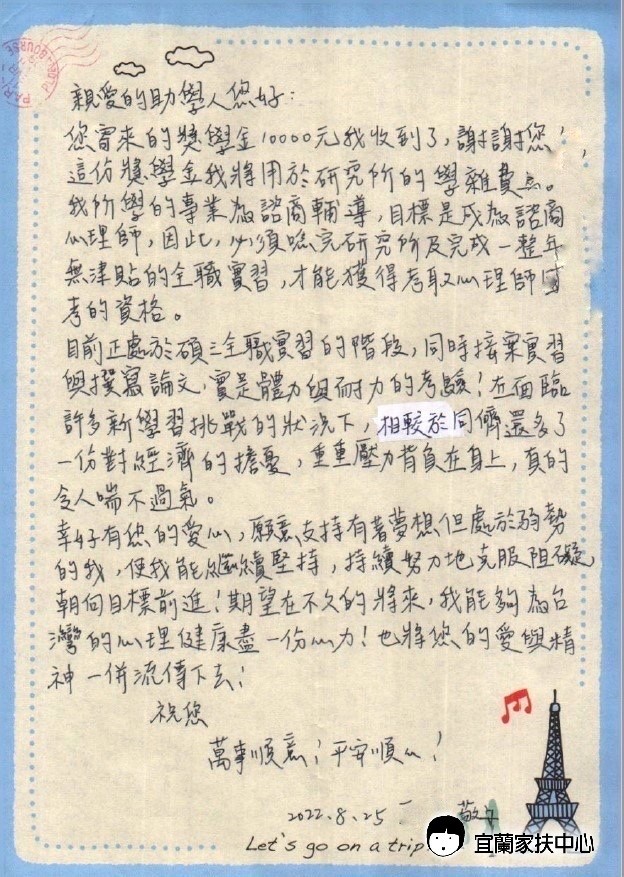 親愛的助學人您好：
您寄來的獎學金10000元我收到了，謝謝您！
這份獎學金我將用於研究所的學雜費上。
我所學的專業為諮商輔導，目標是成為諮商
心理師，因此，必須唸完研究所及完成一整年
無津貼的全職實習，才能獲得考取心理師國
考的資格。
目前正處於碩三全職實習的階段，同時接案實習
與撰寫論文，實是體力與耐力的考驗！在面臨
許多新學習挑戰的狀況下，相較於同儕還多了
一份對經濟的擔憂，重重壓力背負在身上，真的
令人喘不過氣。
幸好有您的愛心，願意支持有著夢想但處於弱勢
的我，使我能繼續堅持，持續努力地克服阻礙
朝向目標前進！期望在不久的將來，我能夠為台
灣的心理健康盡一份心力！也將您的愛與精
神一併流傳下去！
祝您
萬事順意！平安順心！
2022.8.25
敬上
Let's go on a trip
宜蘭家扶中心